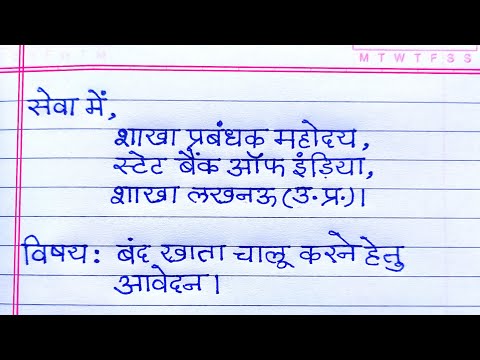 M T W T F S S
सेवा में,
शाखा प्रबंधक महोदय,
स्टेट बैंक ऑफ इंड़िया,
शाखा लखनऊ (उ.प्र.)।
विषय: बंद खाता चालू करने हेतु
आवेदन।